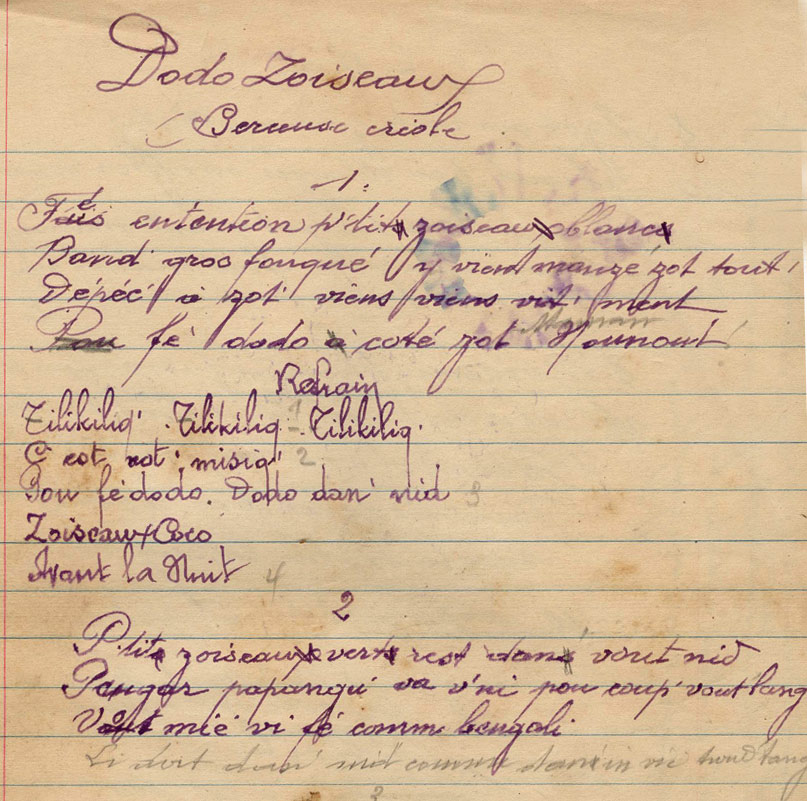 Dodo Zoiseaux
Berceuse créole
1.
Fais entention p'tits zoiseaux blancs
Band' gros fouqué y vient manzé zot tout'
Dépéc' à zot' viens viens vit' ment
Pou fé dodo à coté zot Nounout'
Maman
Refrain
Tilikiliq' Tilikiliq Tilikiliq. 1
C'est not' misiq' 2
Pou fé dodo. Dodo dan' nid 3
Zoiseaux Coco
Avant la Nuit 4
2
P'tits zoiseaux verts rest dans vout nid
Pangar papangu' va v'ni pou coup' vout lang
Vout mié vi fé comm. bengali
Li dort dan' nid comme dan in vié